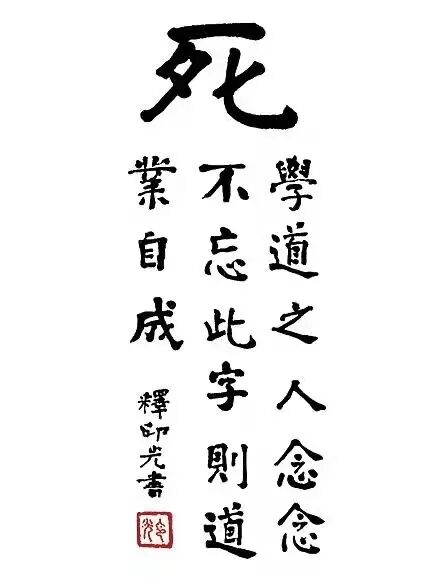 死
學道之人念念
不忘此字則道
業自成
釋印光書
印光